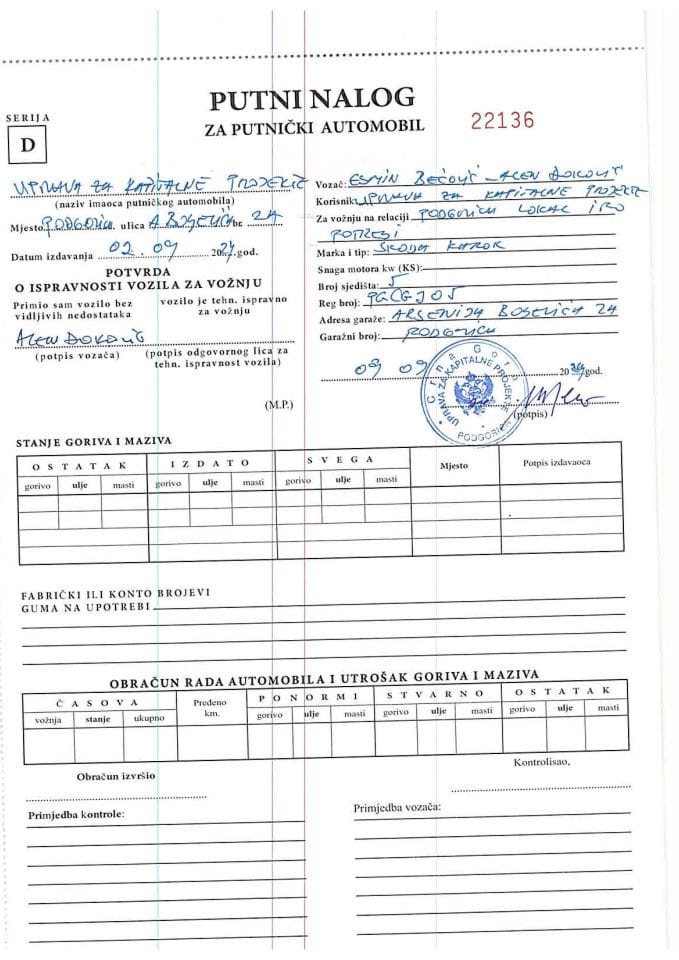 PUTNI NALOG
ZA PUTNIČKI AUTOMOBIL
SERIJA
D
22136
UPRAVA ZA KAPITALNE PROJEKTE
(naziv imaoca putničkog automobila)
Mjesto PODGORICA ulica A BOSEVIĆA br. 2A
Datum izdavanja 02.09 2024 god.
POTVRDA
O ISPRAVNOSTI VOZILA ZA VOŽNJU
Primio sam vozilo bez vidljivih nedostataka
vozilo je tehn. ispravno za vožnju
ALEN ĐOKOVIĆ
(potpis vozača)
(potpis odgovornog lica za tehn. ispravnost vozila)
(M.P.)
Vozač: ESMIN BEĆOVIĆ - ALEN ĐOKOVIĆ
Korisnik: UPRAVA ZA KAPITALNE PROJEKTE
Za vožnju na relaciji PODGORICA LOKAL I PO
POTREBI
Marka i tip: ŠKODA KAROK
Snaga motora kw (KS):
Broj sjedišta: 5
Reg broj: PGCGJ05
Adresa garaže: ARSENIJA BOSEVIĆA 2A
Garažni broj: PODGORICA
09 09 2024 god.
(potpis)
Crna Gora
UPRAVA ZA KAPITALNE PROJEKTE
PODGORICA
STANJE GORIVA I MAZIVA
OSTATAK IZDATO SVEGA Mjesto Potpis izdavaoca
gorivo ulje masti gorivo ulje masti gorivo ulje masti
FABRIČKI ILI KONTO BROJEVI
GUMA NA UPOTREBI
OBRAČUN RADA AUTOMOBILA I UTROŠAK GORIVA I MAZIVA
ČASOVA Pređeno km. PO NORMI STVARNO OSTATAK
vožnja stanje ukupno gorivo ulje masti gorivo ulje masti gorivo ulje masti
Obračun izvršio
Kontrolisao,
Primjedba kontrole:
Primjedba vozača: